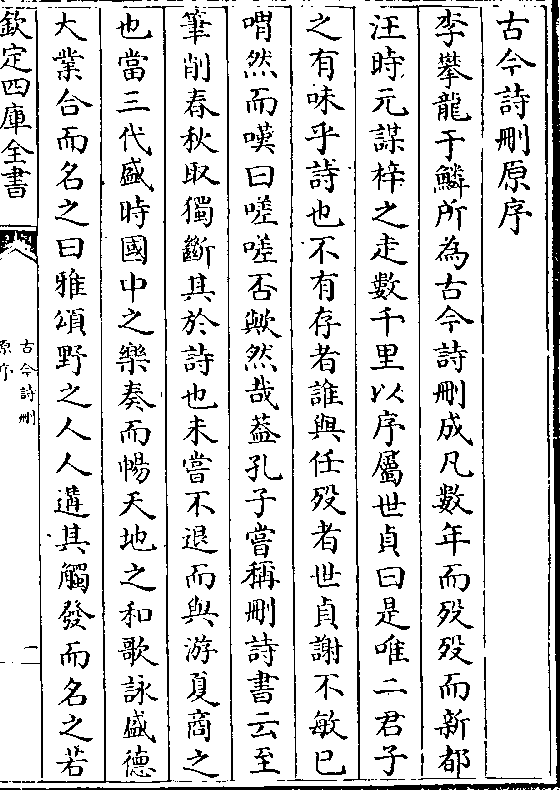 古今詩刪原序
李攀龍于鱗所為古今詩刪成凡數年而歿歿而新都
汪時元謀梓之走數千里以序屬世貞曰是唯二君子
之有味乎詩也不有存者誰與任歿者世貞謝不敏已
喟然而嘆曰嗟嗟否歟然哉葢孔子嘗稱刪詩書云至
筆削春秋取獨斷其於詩也未嘗不退而與游夏商之
也當三代盛時國中之樂奏而暢天地之和歌詠盛德
大業合而名之曰雅頌野之人人遘其觸發而名之若
欽定四庫全書
古今詩刪
原序
二